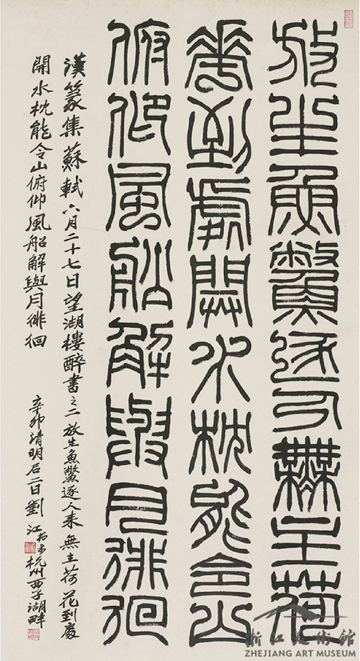 放生魚鱉逐人來無主荷
花到處開水枕能令山
俯仰風船解與月徘徊
漢篆集蘇軾六月二十七日望湖樓醉書之二放生魚鱉逐人來無主荷花到處
開水枕能令山俯仰風船解與月徘徊 辛卯清明后二日劉江 杭州西子湖畔
浙江美術館
ZHEJIANG ART MUSEUM